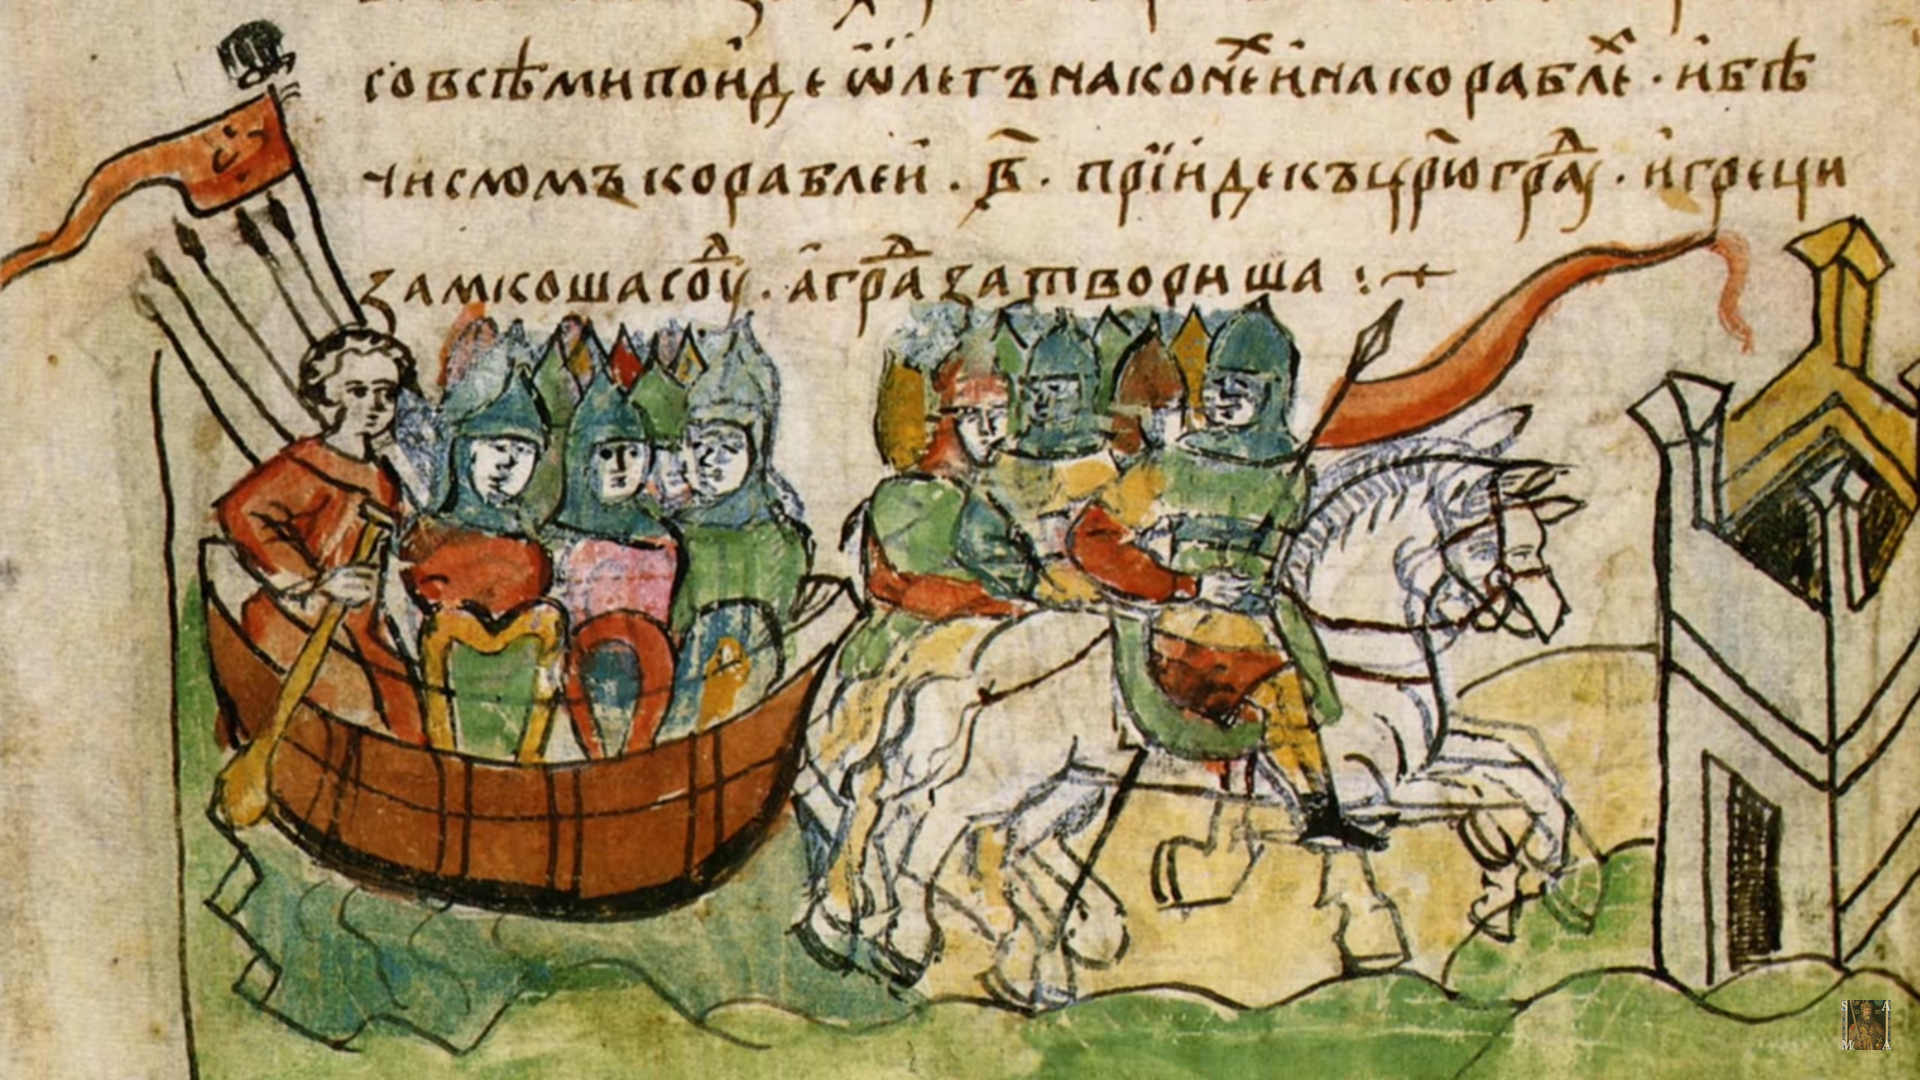 совсѣминпоиде ѿлегънаконеинакорабле · ибѣ
числомъкораблеи · в҃ · прїидекъцр҃юграⷣ · игреци
замкошасоуⷣ · аграⷣзатвориша :
S A
M A